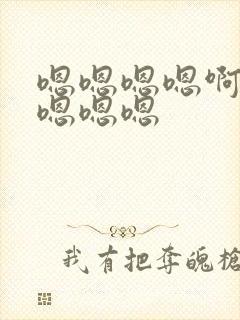 嗯嗯嗯嗯啊
嗯嗯嗯
我有把夺魄枪